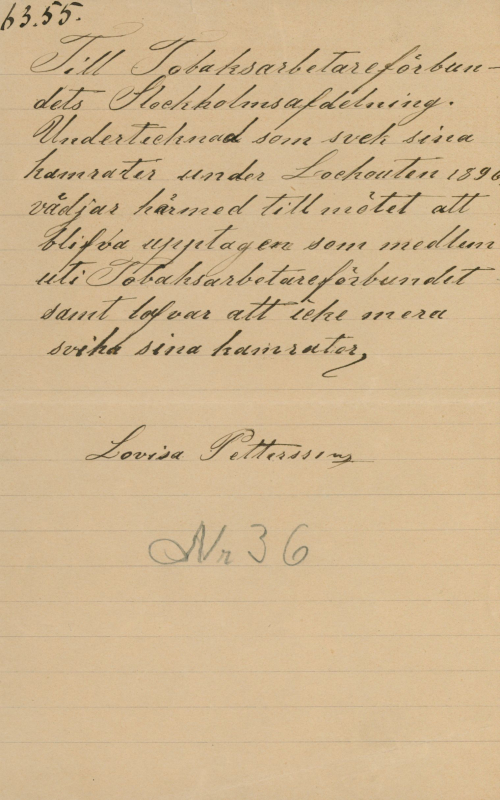 63.55.
Till Tobaksarbetareförbun-
dets Stockholmsafdelning.
Undertecknad som svek sina
kamrater under Lockouten 1896
vädjar härmed till mötet att
blifva upptagen som medlem
uti Tobaksarbetareförbundet
samt lofvar att icke mera
svika sina kamrater,
Lovisa Pettersson
Nr 36